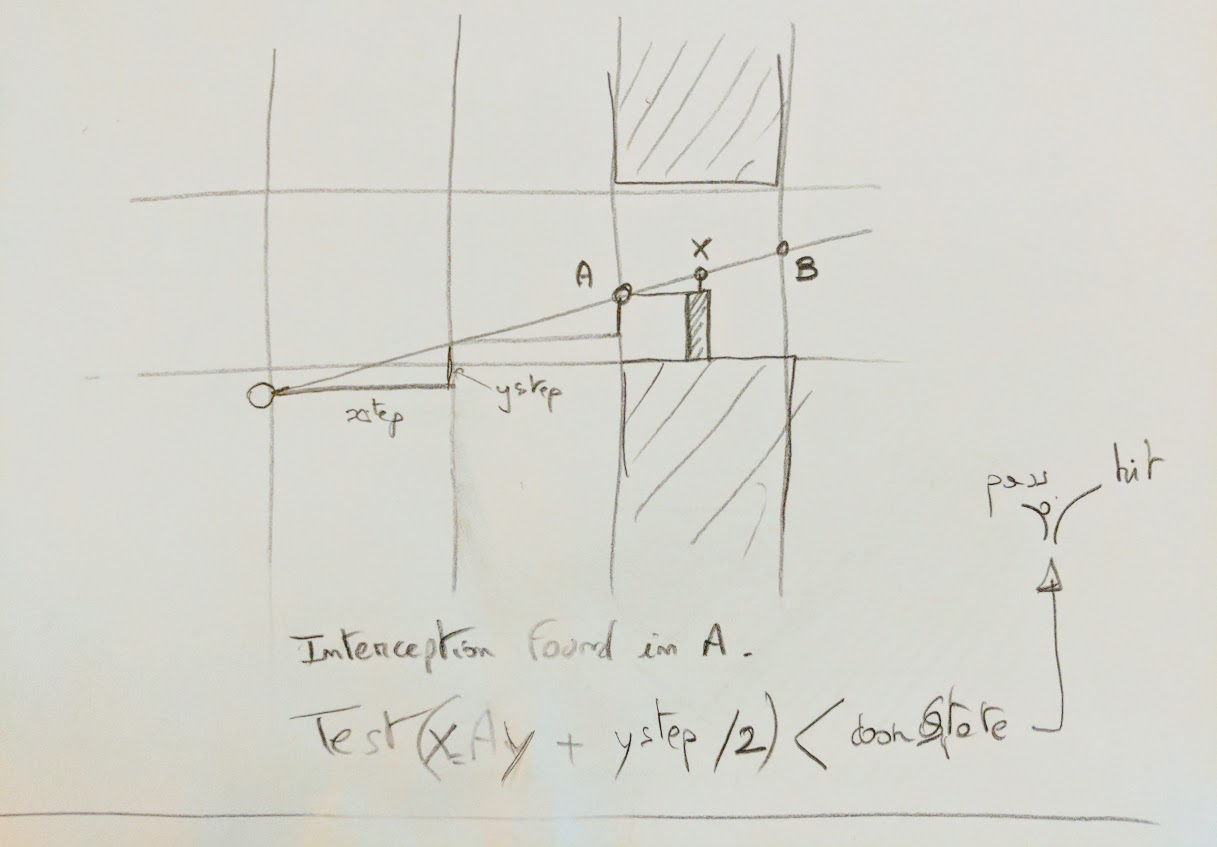 X
A
B
ystep
xstep
pass
hit
Interception found in A.
Test(XAy + ystep/2) < doorState